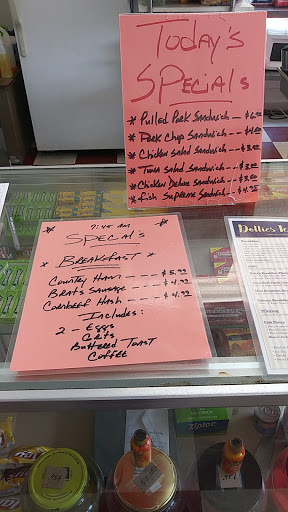 Today's
Specials
* Pulled Pork Sandwich -- $6.00
* Pork Chop Sandwich -- $4.00
* Chicken Salad Sandwich -- $3.00
* Tuna Salad Sandwich -- $3.00
* Chicken Deluxe Sandwich -- $3.
* Fish Supreme Sandwich -- $4.
7:45 AM
* Special's *
* Breakfast *
Country Ham ---- $5.99
Brats Sausage ---- $4.99
Cornbeef Hash ---- $4.99
Includes:
2 - Eggs
Grits
Buttered Toast
Coffee
Dollies
Ziploc